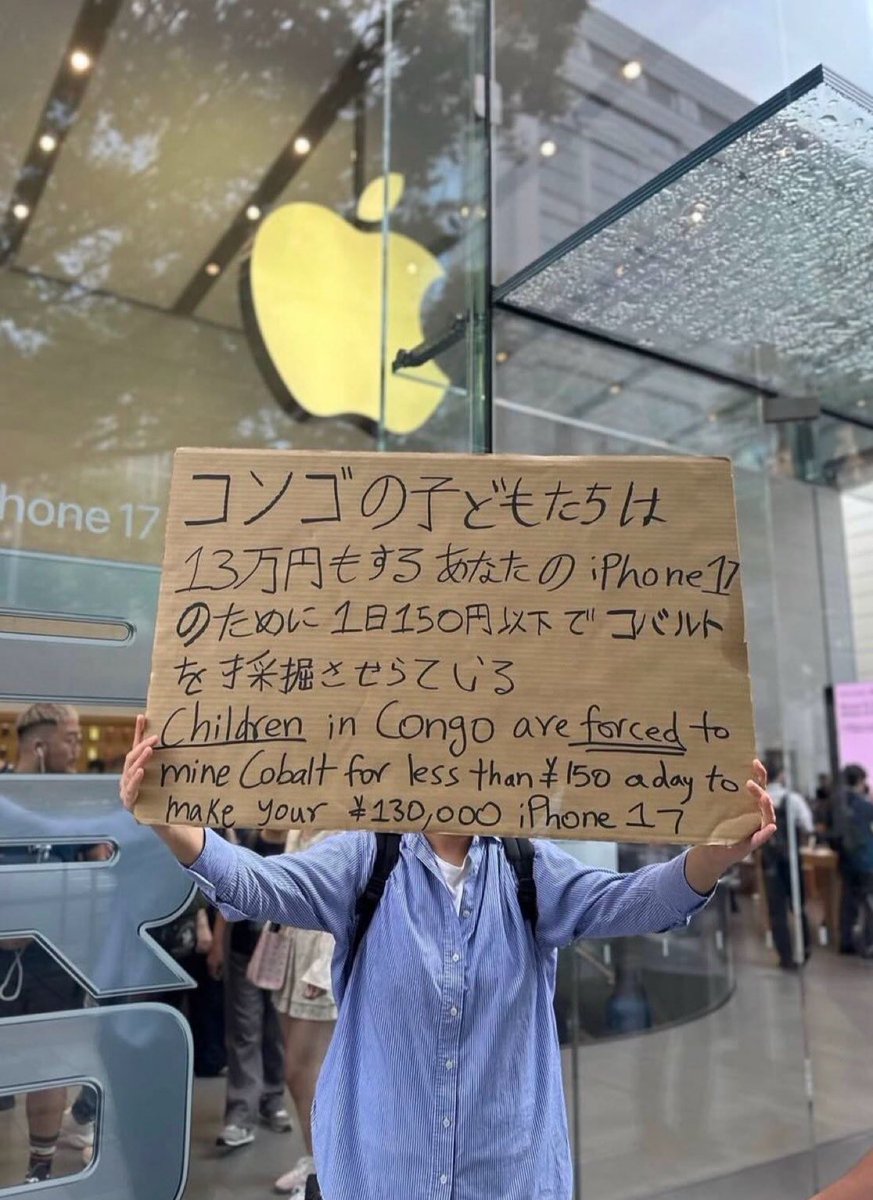 hone 17
コンゴの子どもたちは
13万円もするあなたのiPhone17
のために1日150円以下でコバルト
を採掘させらている
Children in Congo are forced to
mine Cobalt for less than ¥150 a day to
make your ¥130,000 iPhone 17